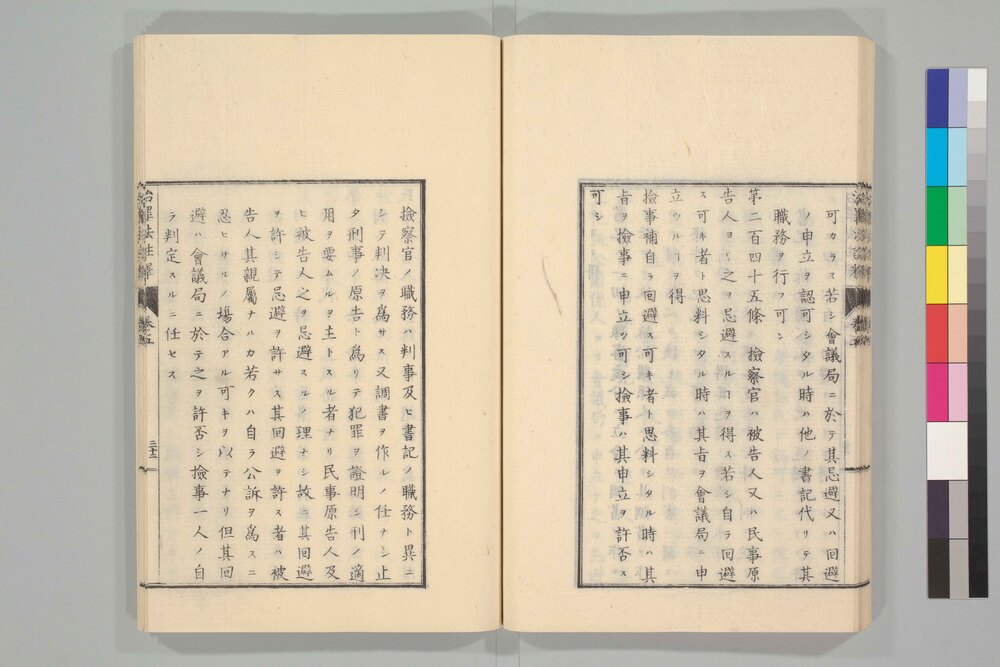 可カラス若シ會議局ニ於テ其忌避又ハ回避
ノ申立ヲ認可シタル時ハ他ノ書記代リテ其
職務ヲ行フ可シ
第二百四十五條 撿察官ハ被告人又ハ民事原
告人ヨリ之ヲ忌避スルヿヲ得ス若シ自ラ回避
ス可キ者ト思料シタル時ハ其㫖ヲ會議局ニ申
立ツルヿヲ得
撿事補自ラ回避ス可キ者ト思料シタル時ハ其
㫖ヲ撿事ニ申立ツ可シ撿事ハ其申立ヲ許否ス
可シ
撿察官ノ職務ハ判事及ヒ書記ノ職務ト異ニ
シテ判决ヲ爲サス又調書ヲ作ルノ任ナシ止
タ刑事ノ原告ト爲リテ犯罪ヲ證明シ刑ノ適
用ヲ要ムルヲ主トスル者ナリ民事原告人及
ヒ被告人之ヲ忌避スルノ理ナシ故ニ其回避
ヲ許シテ忌避ヲ許サス其回避ヲ許ス者ハ被
告人其親屬ナルカ若クハ自ラ公訴ヲ爲スニ
忍ヒサルノ塲合アル可キヲ以テナリ但其回
避ハ會議局ニ於テ之ヲ許否シ撿事一人ノ自
ラ判定スルニ任セス
治罪法註釋
卷五